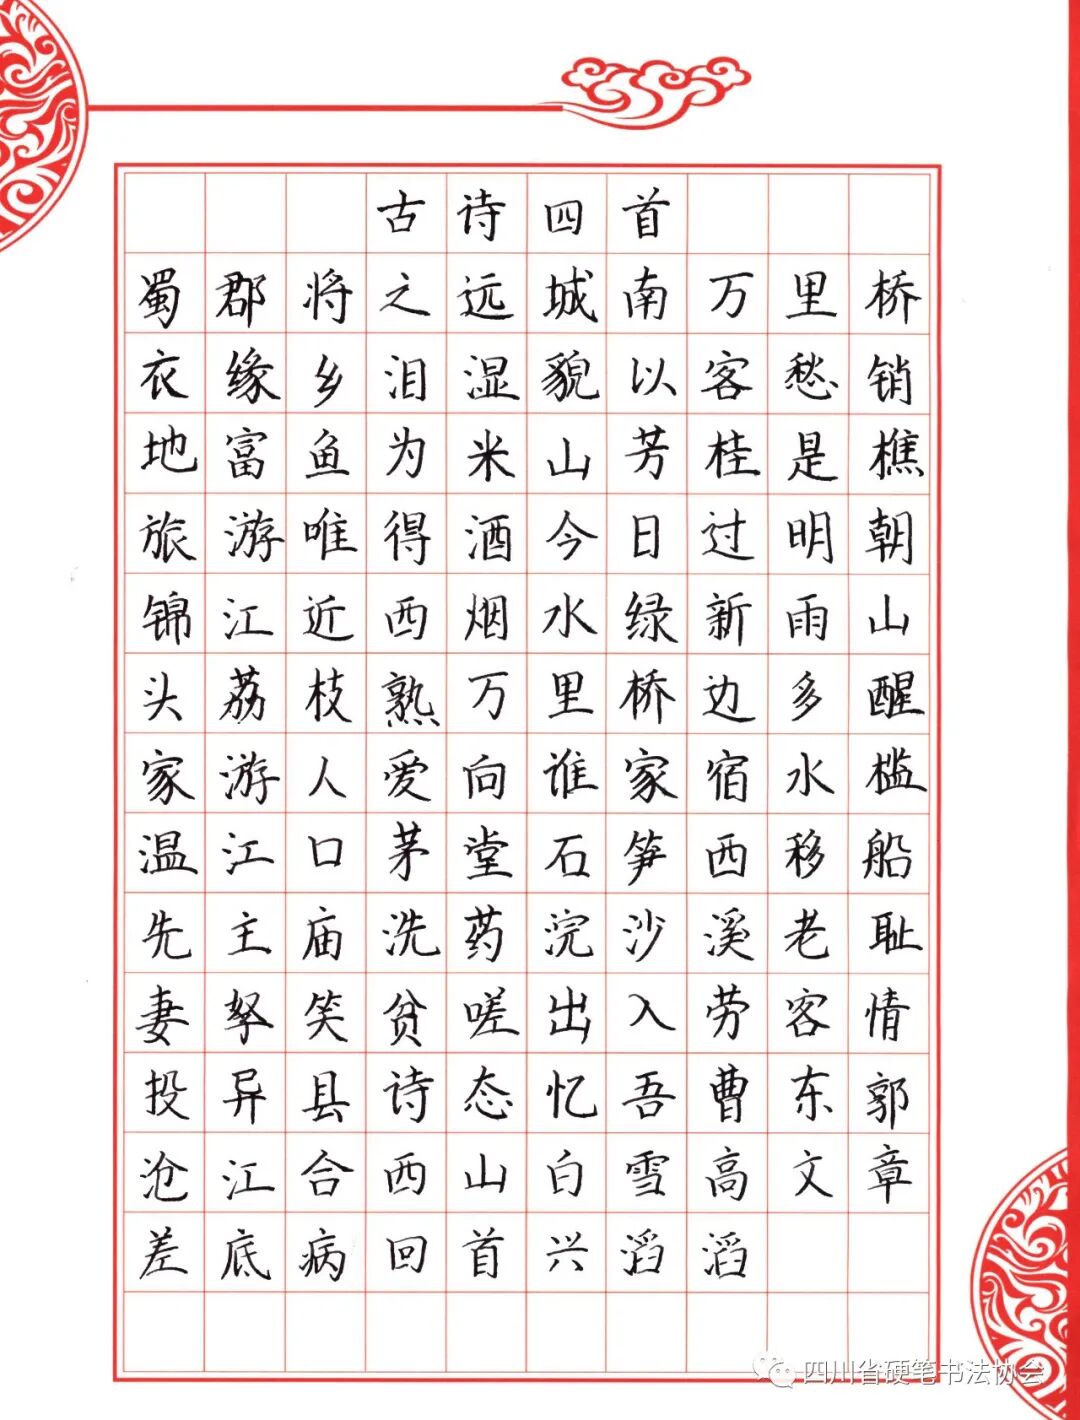 古诗四首
蜀郡将之远城南万里桥
衣缘乡泪湿貌以客愁销
地富鱼为米山芳桂是樵
旅游唯得酒今日过明朝
锦江近西烟水绿新雨山
头荔枝熟万里桥边多醒
家游人爱向谁家宿水槛
温江口茅堂石笋西移船
先主庙洗药浣沙溪老耻
妻孥笑贫嗟出入劳客情
投异县诗态忆吾曹东郭
沧江合西山白雪高文章
差底病回首兴滔滔
四川省硬笔书法协会